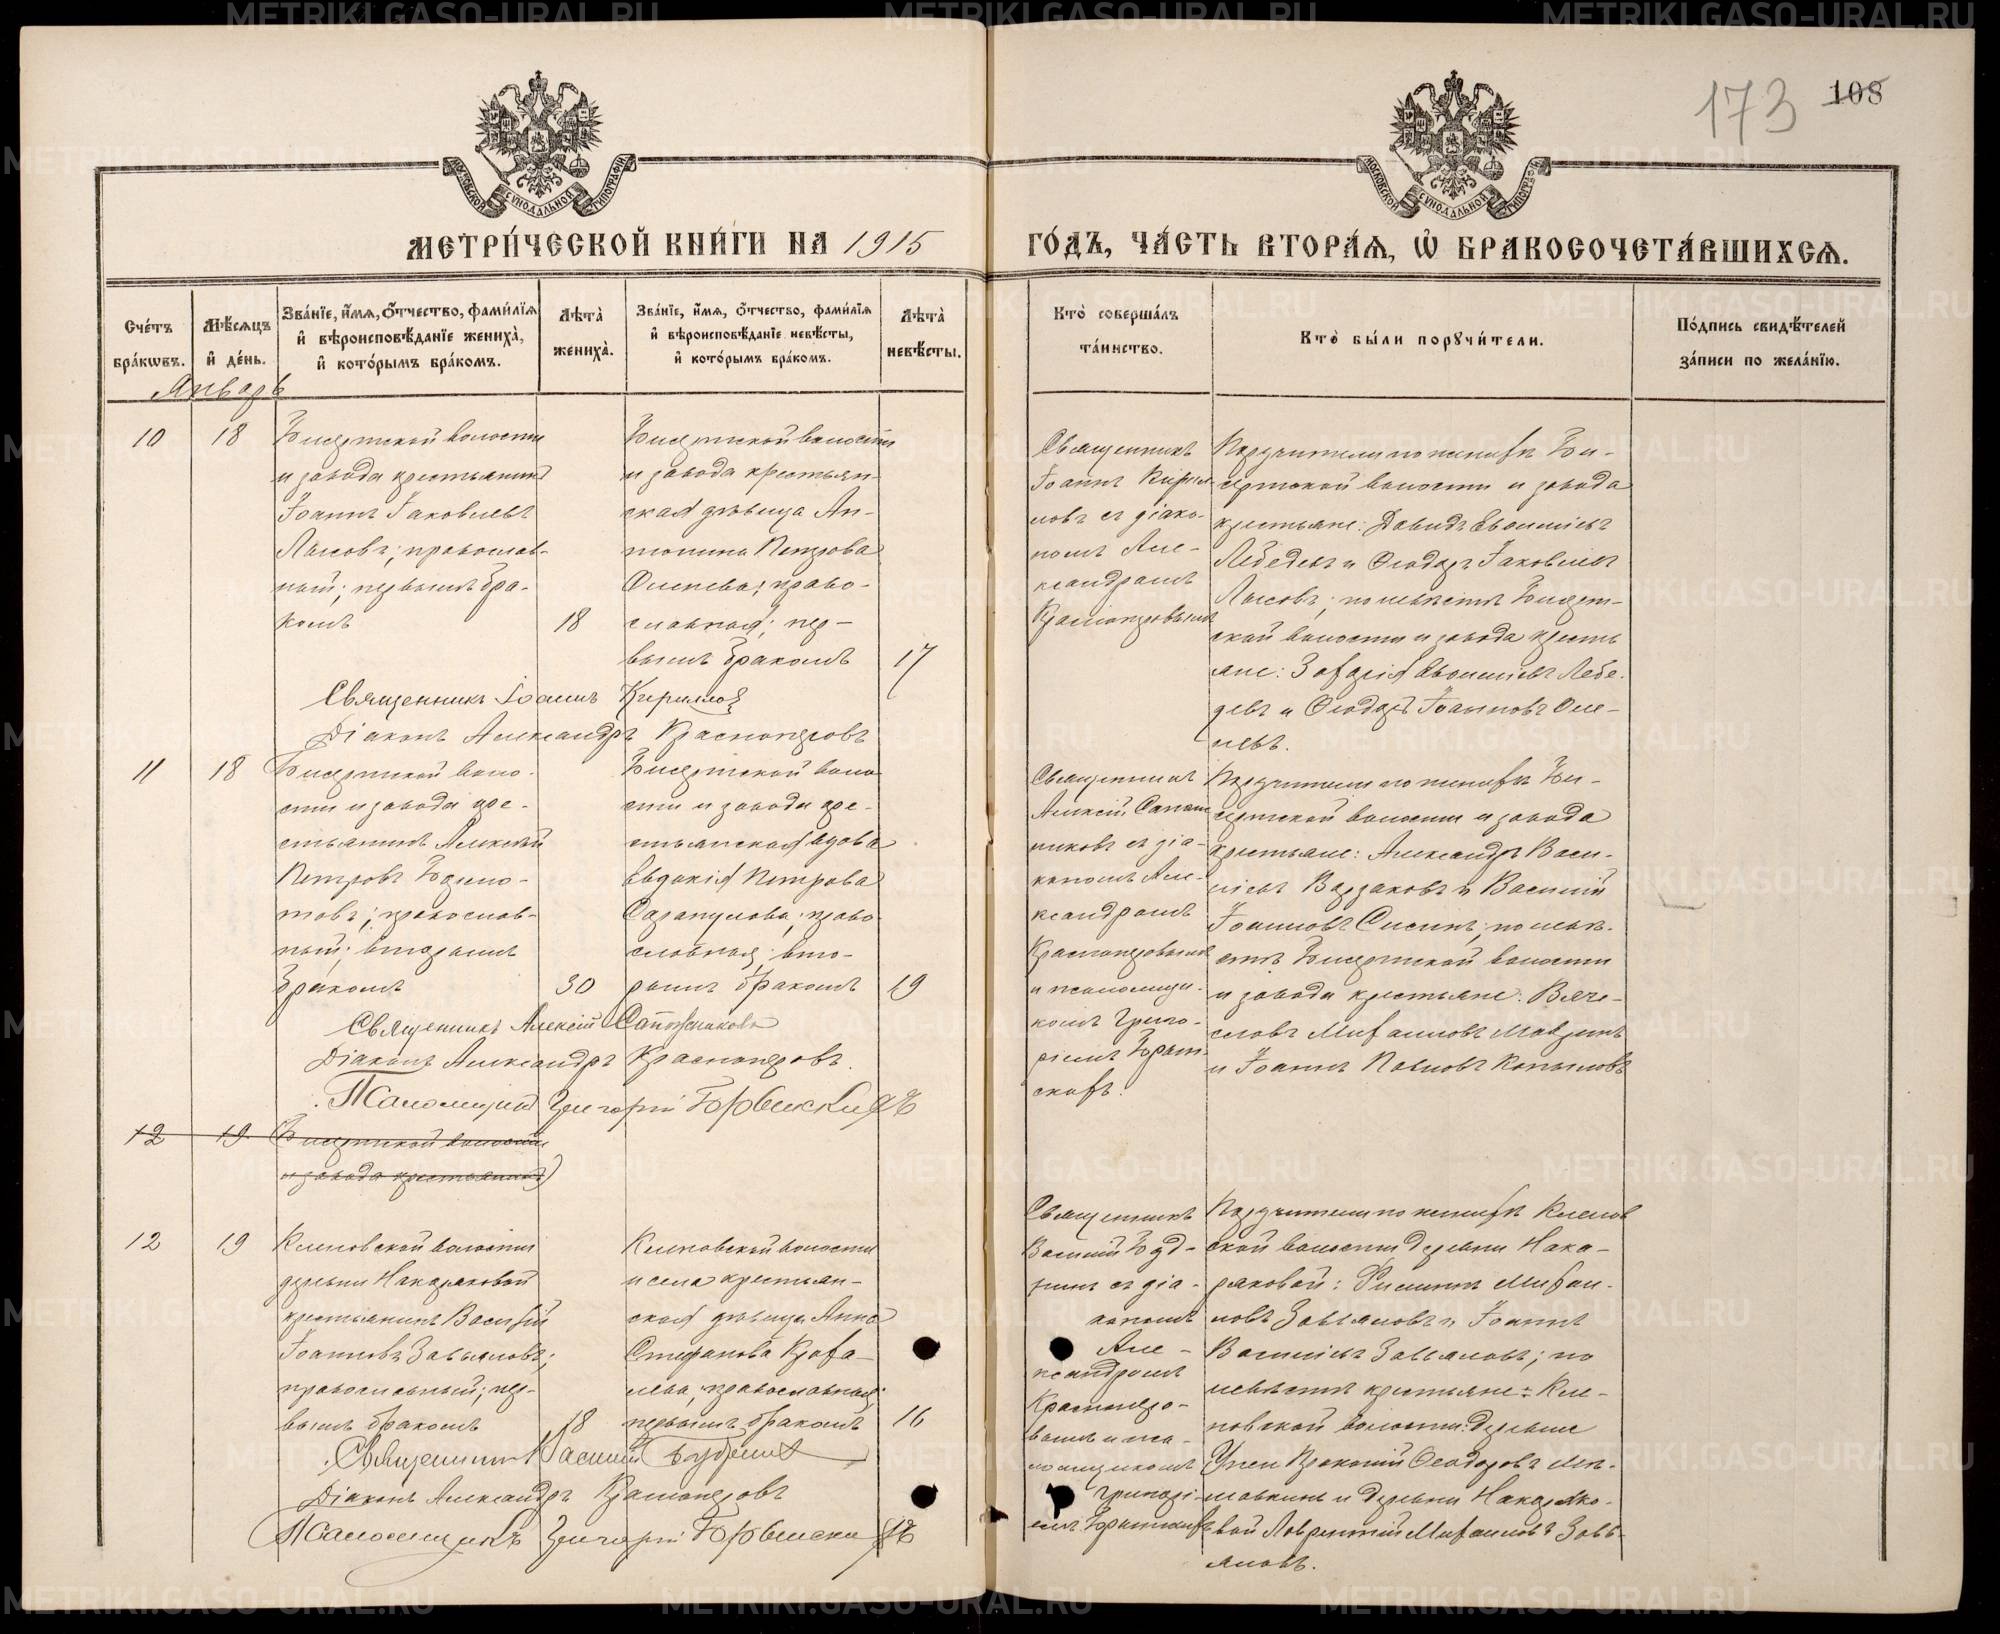 173 108
МЕТРИ́ЧЕСКОЙ КНИ́ГИ НА 1915 ГО́ДЪ, ЧА́СТЬ ВТОРА́Я, Ѡ҆ БРАКОСОЧЕТА́ВШИХСЯ.
Сче́тъ бра́кѡвъ.
Мѣ́сяцъ и҆ де́нь.
Зва́нїе, и҆́мя, ѻ҆́тчество, фами́лїя и҆ вѣроисповѣ́данїе жениха̀, и҆ кото́рымъ бра́комъ.
Лѣ́та̀ жениха̀.
Зва́нїе, и҆́мя, ѻ҆́тчество, фами́лїя и҆ вѣроисповѣ́данїе невѣ́сты, и҆ кото́рымъ бра́комъ.
Лѣ́та̀ невѣ́сты.
Кто̀ соверша́лъ та́инство.
Кто̀ бы́ли порꙋчи́тели.
По́дпись свидѣ́телей за́писи по жела́нїю.
Январь
10
18
Бисертской волости
и завода крестьянинъ
Іоаннъ Іаковлевъ
Лысовъ; православ-
ный; первымъ бра-
комъ
18
Бисертской волости
и завода крестьян-
ская дѣвица Ан-
тонина Петрова
православная; пер-
вымъ бракомъ
17
Священникъ
Іоаннъ Кирил-
ловъ съ діако-
номъ Але-
ксандромъ
Красноперовымъ
Поручители по женихѣ Би-
сертской волости и завода
крестьяне: Давидъ Евоиміевъ
Лебедевъ и Ѳеодоръ Іаковлевъ
Лысовъ; по невѣстѣ Бисерт-
ской волости и завода кресть
яне: Лебе-
девъ и Ѳеодоръ Іоанновъ Оме-
Священникъ Іоаннъ Кирилловъ
Діаконъ Александръ Красноперовъ
11
18
Бисертской воло-
сти и завода кре-
стьянинъ Алексѣй
Петровъ
православ-
ный; вторымъ
бракомъ
30
Бисертской воло-
сти и завода кре-
стьянская вдова
Евдокія Петрова
Сарапулова; право-
славная; вто-
рымъ бракомъ
19
Священникъ
Алексій Сапож
никовъ съ діа-
кономъ Але-
ксандромъ
Красноперовымъ
и псаломщи-
комъ Григо-
ріемъ
Поручители по женихѣ Би-
сертской волости и завода
крестьяне: Александръ Васи-
ліевъ и Василій
Іоанновъ Сысинъ; по невѣ-
стѣ Бисертской волости
и завода крестьяне: Вяче-
славъ Михаиловъ
и Іоаннъ Павловъ Копыловъ
Священникъ Алексій Сапожниковъ
Діаконъ Александръ Красноперовъ.
Псаломщикъ Григорій
12
19
Бисертской волости
и завода крестьянинъ
12
19
Кленовской волости
деревни Накаряковой
крестьянинъ Василій
Іоанновъ Завьяловъ;
православный; пер-
вымъ бракомъ
18
Кленовской волости
и села крестьян-
ская дѣвица Анна
Стефанова
православная;
первымъ бракомъ
16
Священникъ
Василій Буд-
ринъ съ діа-
кономъ
Але-
ксандромъ
Красноперо-
вымъ и пса-
ломщикомъ
Григорі-
емъ
Поручители по женихѣ Кленов
ской волости деревни Нака-
ряковой: Филиппъ Михаи-
ловъ Завьяловъ и Іоаннъ
Василіевъ Завьяловъ; по
невѣстѣ крестьяне: Кле-
новской волости: деревни
Прокопій Ѳеодоровъ
и деревни Накаряко-
вой Лаврентій Михаиловъ Завь-
яловъ.
Священникъ Василій Будринъ
Діаконъ Александръ Красноперовъ
Псаломщикъ Григорій